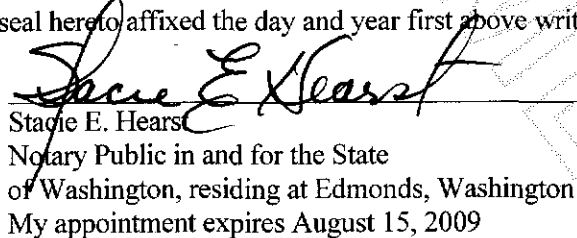 seal hereto affixed the day and year first above writ
Stacie E Hearst
Stacie E. Hearst
Notary Public in and for the State
of Washington, residing at Edmonds, Washington
My appointment expires August 15, 2009